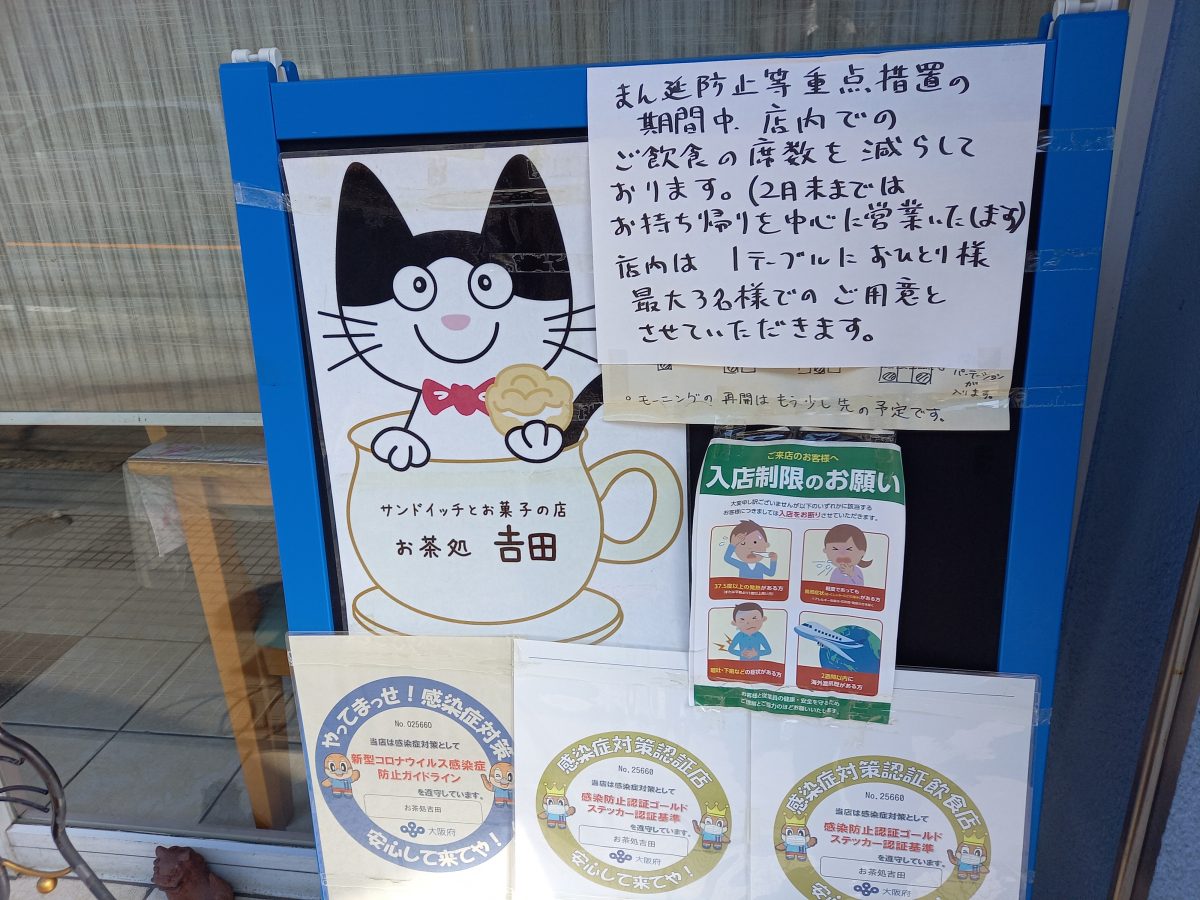 まん延防止等重点措置の
期間中、店内での
ご飲食の席数を減らして
おります。(2月末までは
お持ち帰りを中心に営業いたします)
店内は 1テーブルにおひとり様
最大3名様でのご用意と
させていただきます。
パーテーション
が
入ります。
○モーニングの再開はもう少し先の予定です。
サンドイッチとお菓子の店
お茶処 𠮷田
ご来店のお客様へ
入店制限のお願い
大変申し訳ございませんが以下のいずれかに該当する
お客様につきましては入店をお断りさせていただきます。
37.5度以上の発熱がある方
軽度であっても
がある方
嘔吐・下痢などの症状がある方
2週間以内に
海外渡航歴がある方
お客様と従業員の健康・安全を守るため
ご理解とご協力のほどお願いいたします。
やってまっせ!感染症対策
No. 025660
当店は感染症対策として
新型コロナウイルス感染症
防止ガイドライン
を遵守しています。
お茶処吉田
大阪府
安心して来てや!
感染症対策認証店
No. 25660
当店は感染症対策として
感染防止認証ゴールド
ステッカー認証基準
を遵守しています。
お茶処吉田
大阪府
安心して来てや!
感染症対策認証飲食店
No. 25660
当店は感染症対策として
感染防止認証ゴールド
ステッカー認証基準
を遵守しています。
お茶処吉田
大阪府